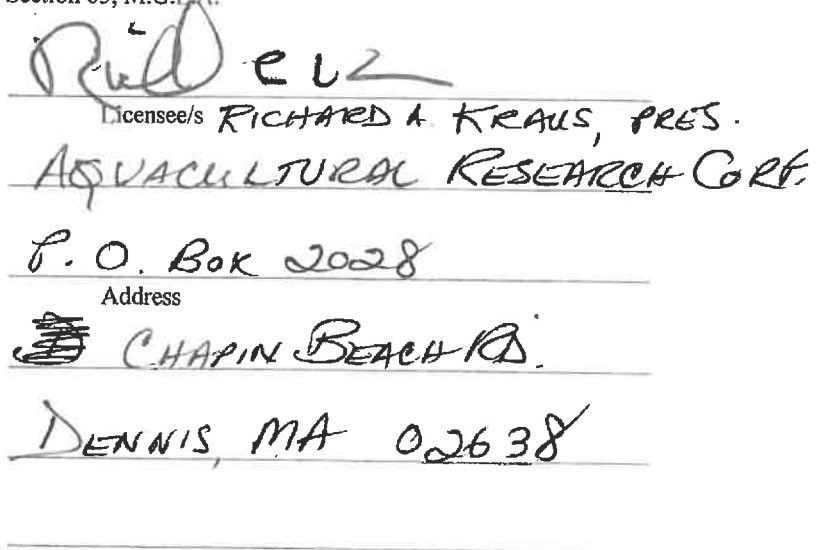 Licensee/s RICHARD A KRAUS, PRES.
AQUACULTURAL RESEARCH CORP.
P. O. BOX 2028
Address
CHAPIN BEACH RD.
DENNIS, MA 02638